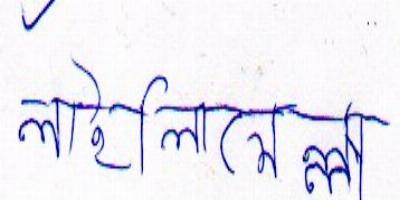 লাইলিমেল্লা